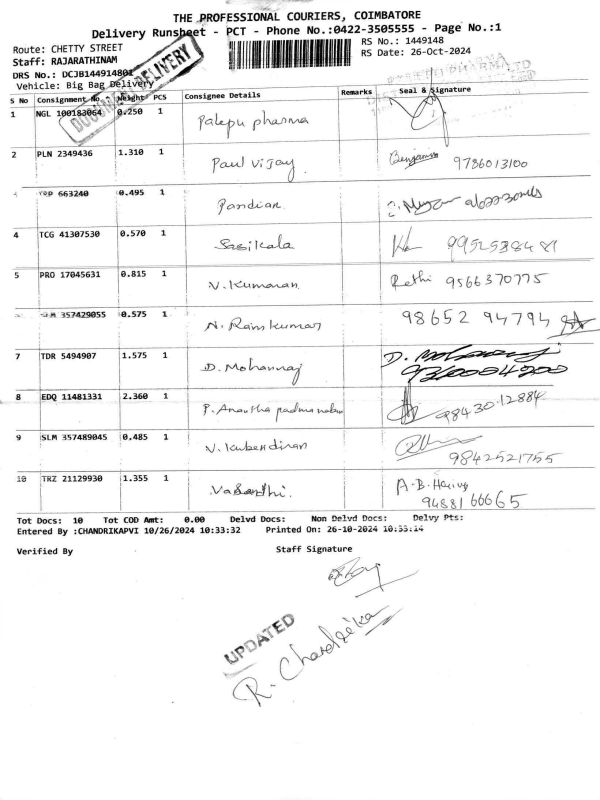 THE PROFESSIONAL COURIERS, COIMBATORE
Delivery Runsheet - PCT - Phone No.:0422-3505555 - Page No.:1
Route: CHETTY STREET
RS No.: 1449148
Staff: RAJARATHINAM
RS Date: 26-Oct-2024
DRS No.: DCJB144914801
Vehicle: Big Bag Delivery
DELIVERY
S No Consignment No Weight PCS Consignee Details Remarks Seal & Signature
1 NGL 100183064 0.250 1 Palepu pharma
2 PLN 2349436 1.310 1 Paul Vijay Benjamin 9786013100
663240 0.495 1 Pandian
4 TCG 41307530 0.570 1 Sasikala 9952538481
5 PRO 17045631 0.815 1 V. Kumaran Rethi 9566370775
SLM 357429055 0.575 1 N. Ramkumar 98652 94794
7 TDR 5494907 1.575 1 D. Mohanraj
8 EDQ 11481331 2.360 1 P. Anantha padmanaban 98430 12884
9 SLM 357489045 0.485 1 V. Kubendiran 9842521755
10 TRZ 21129930 1.355 1 Vasanthi. A.B. 9488166665
Tot Docs: 10 Tot COD Amt: 0.00 Delvd Docs: Non Delvd Docs: Delvy Pts:
Entered By :CHANDRIKAPVI 10/26/2024 10:33:32 Printed On: 26-10-2024 10:33:14
Verified By Staff Signature
UPDATED
R. Chandrika